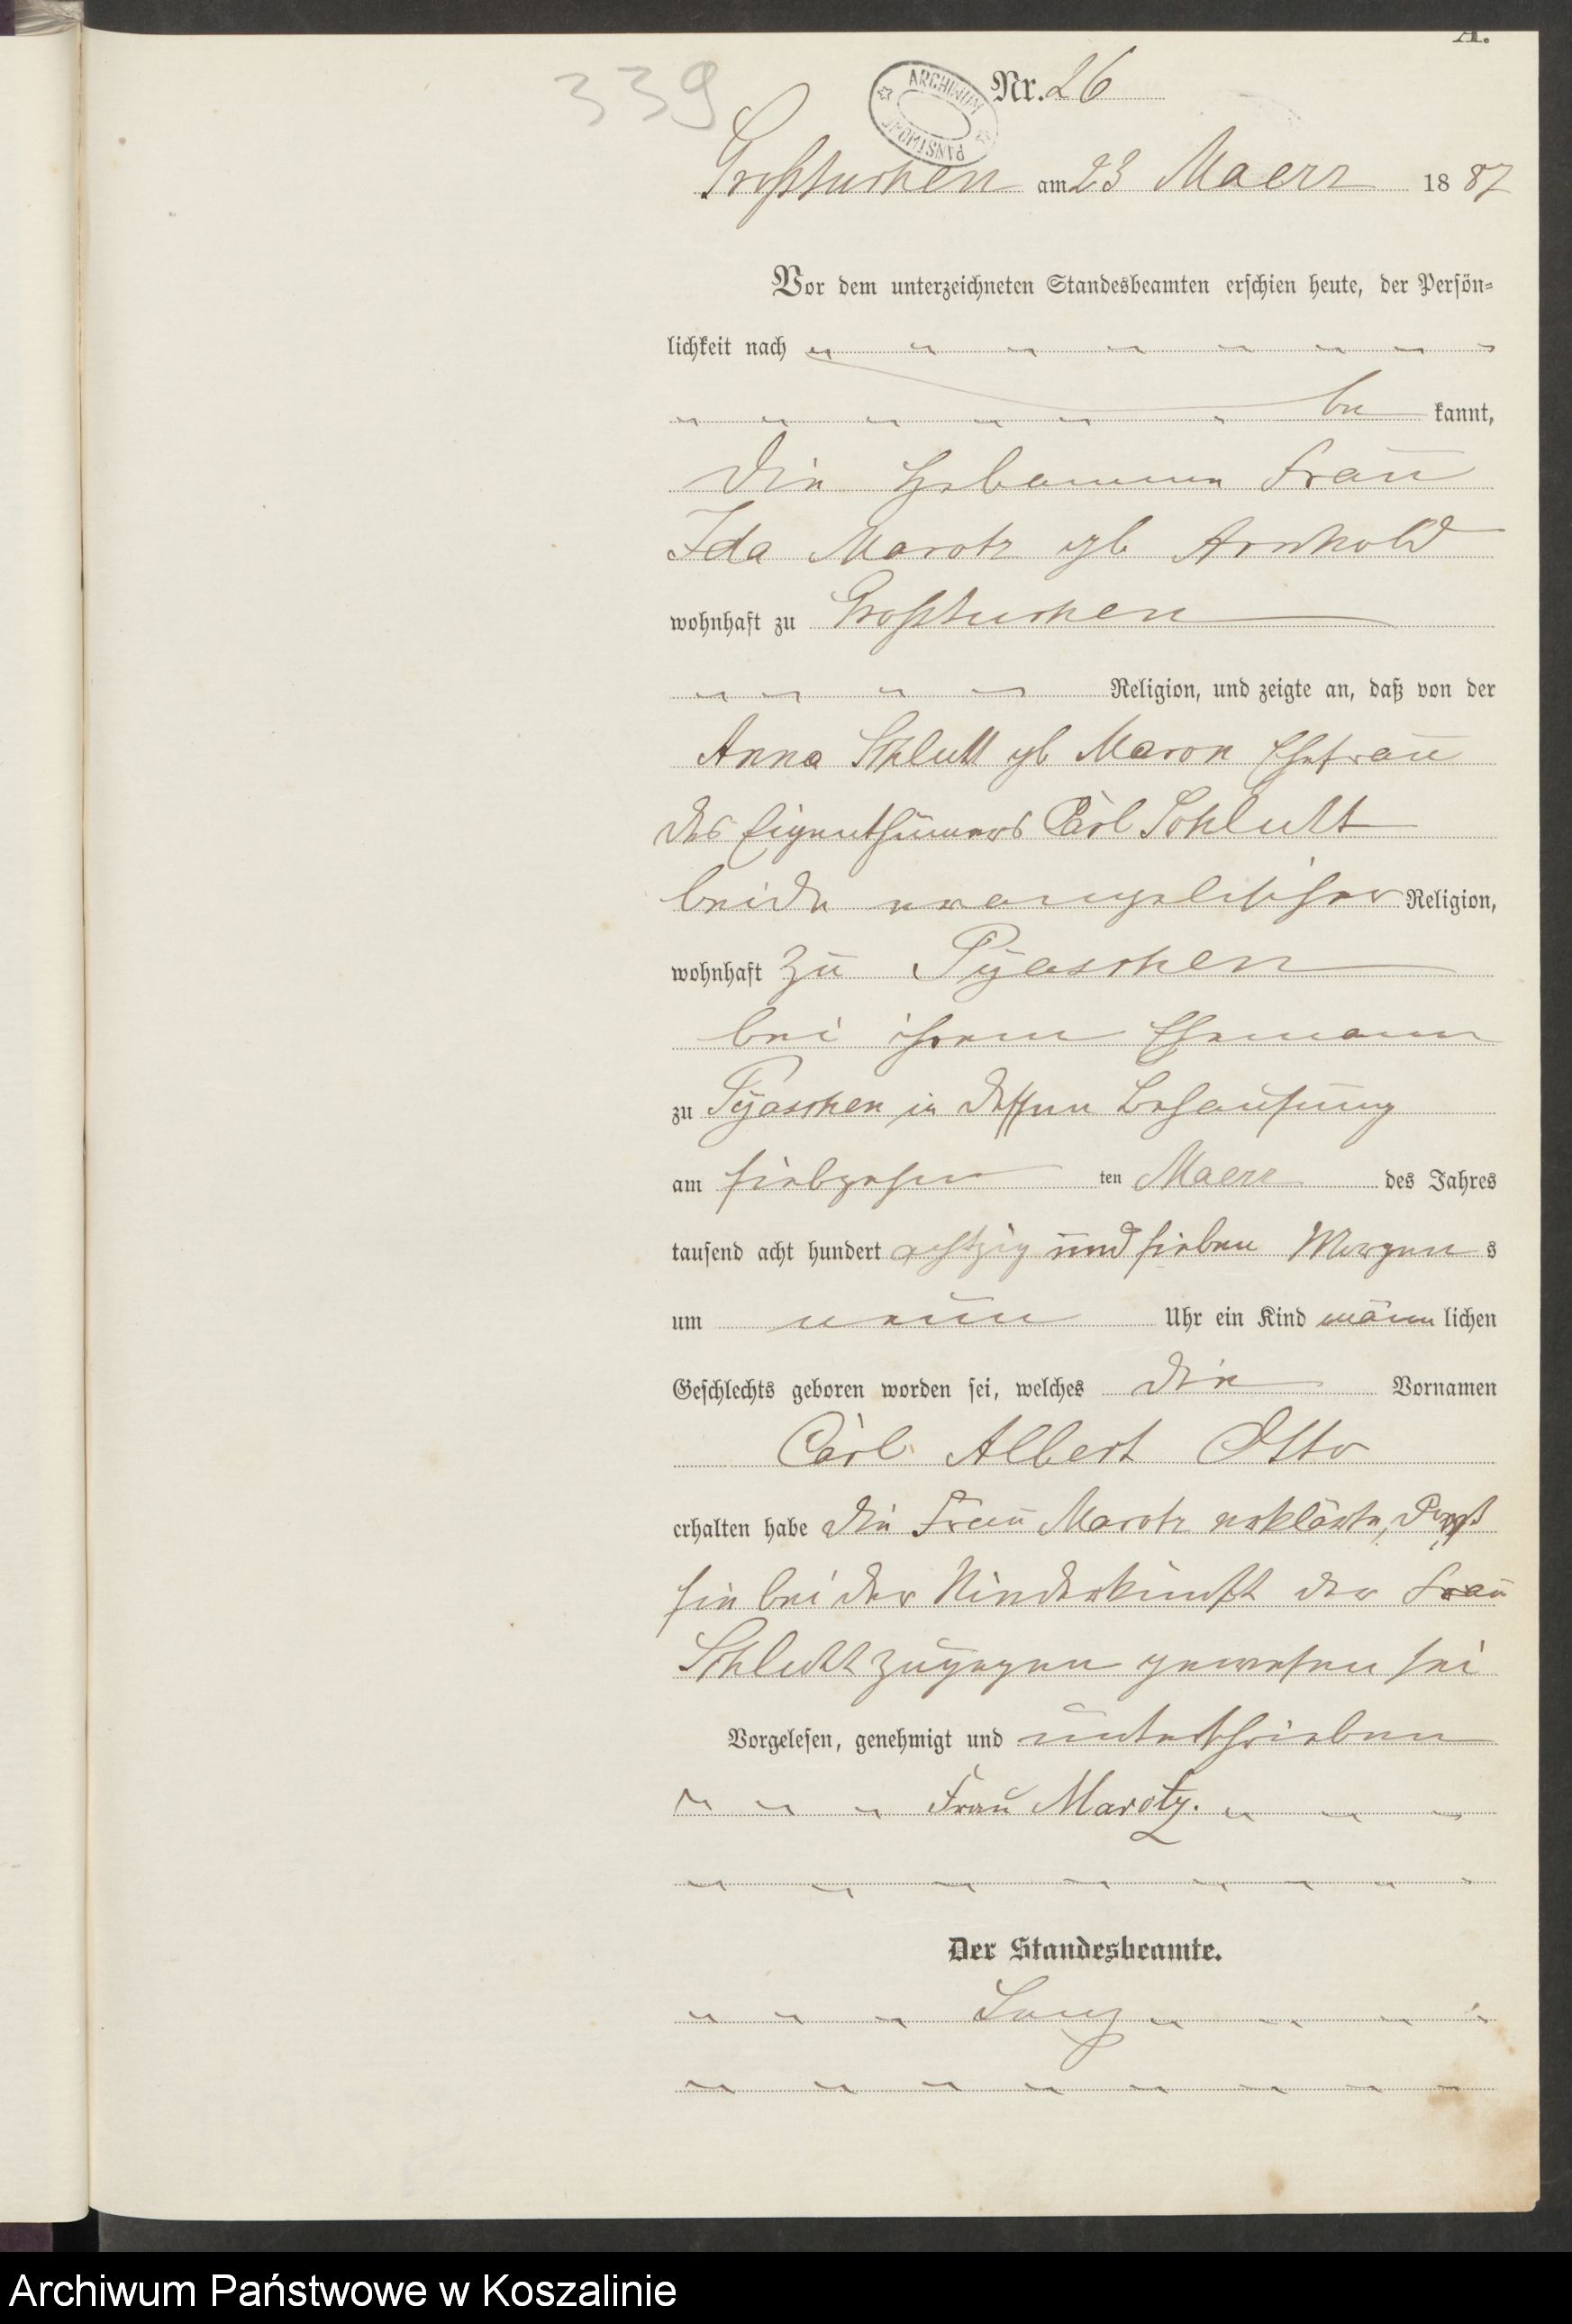 A.
339
ARCHIWUM PAŃSTWOWE
Nr. 26
Großtuchen am 23 Maerz 1887
Vor dem unterzeichneten Standesbeamten erschien heute, der Persön-
lichkeit nach
be kannt,
die Hebamme Frau
Ida Marotz gb Arnhold
wohnhaft zu Großtuchen
Religion, und zeigte an, daß von der
Anna Schlutt gb Maron Ehefrau
des Eigenthümers Carl Schlutt
beide evangelischer Religion,
wohnhaft zu Pyaschen
bei ihrem Ehemann
zu Pyaschen in dessen Behausung
am siebzehn ten Maerz des Jahres
tausend acht hundert achtzig und sieben Morgens
um neun Uhr ein Kind männlichen
Geschlechts geboren worden sei, welches die Vornamen
Carl Albert Otto
erhalten habe die Frau Marotz erklärte, daß
sie bei der Niederkunft der Frau
Schlutt zugegen gewesen sei
Vorgelesen, genehmigt und unterschrieben
Frau Marotz.
Der Standesbeamte.
Archiwum Państwowe w Koszalinie